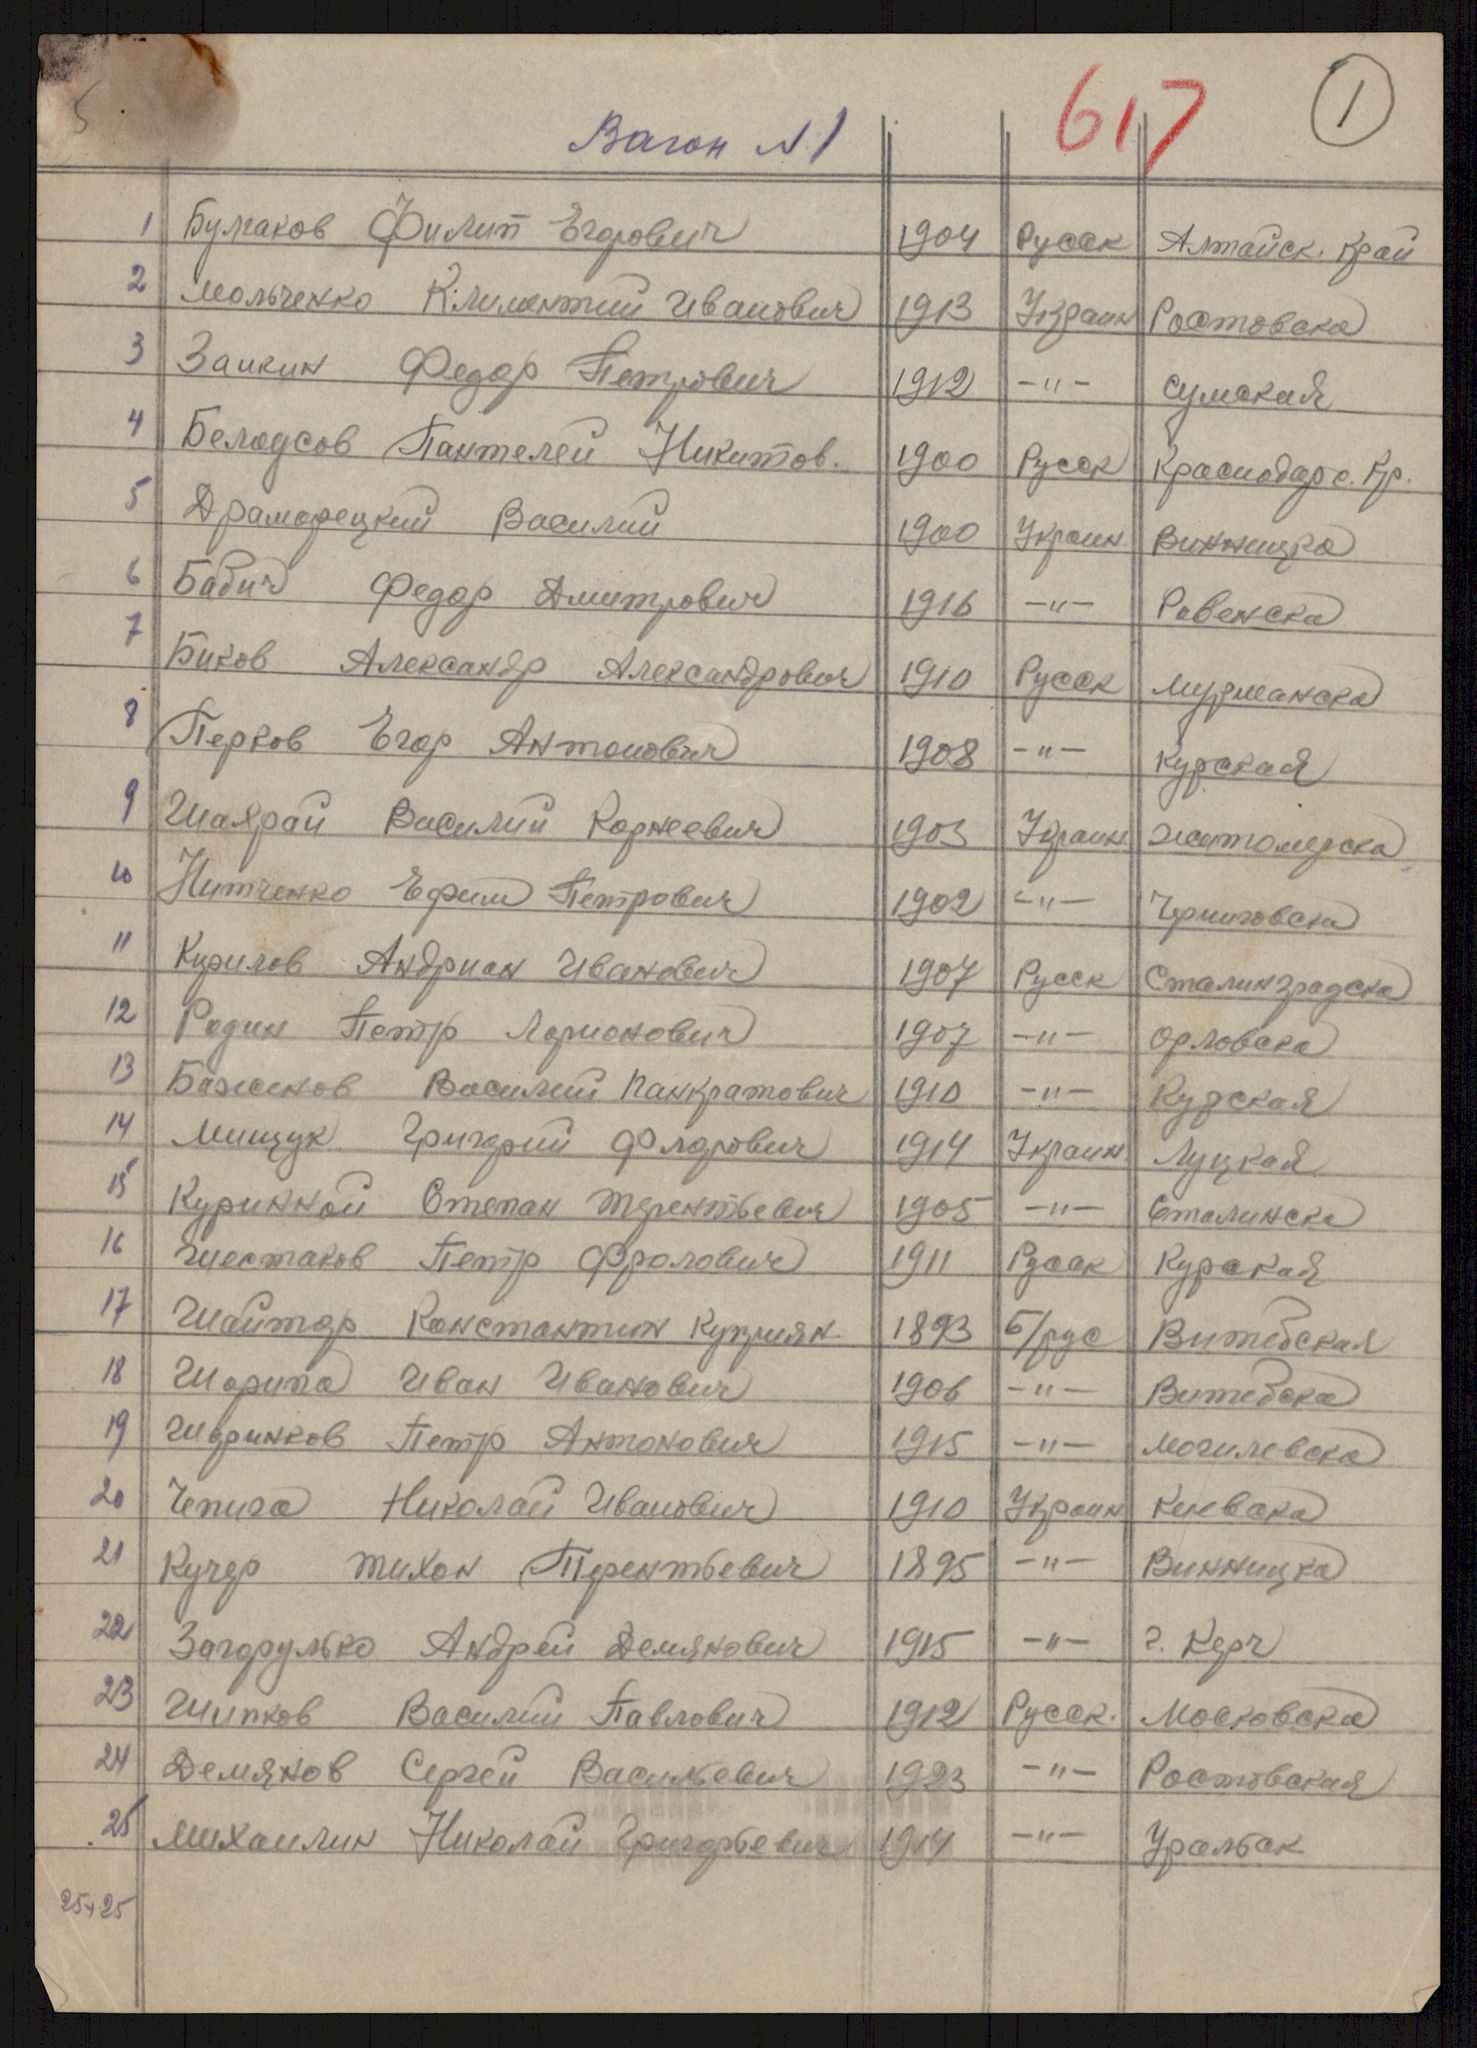 5
617
1
Вагон N. 1
1 Булгаков Филип Егорович 1904 Русск Алтайск. Край
2 Мольченко Климентий Иванович 1913 Украин Ростовска
3 Заикин Федор Петрович 1912 -"- Сумская
4 Белоусов Пантелей Никитов. 1900 Русск Краснодарс. Кр.
5 Драморецкий Василий 1900 Украин Винницка
6 Бабич Федор Дмитрович 1916 -"- Ровенска
7 Биков Александр Александрович 1910 Русск Мурманска
8 Перков Егор Антонович 1908 -"- Курская
9 Шаярай Василий Корнеевич 1903 Украин Житомерска
10 Нитченко Ефим Петрович 1902 -"- Черниговска
11 Курилов Андриан Иванович 1907 Русск Сталинградска
12 Родин Петр Ларионович 1907 -"- Орловска
13 Баженов Василий Панкратович 1910 -"- Курская
14 Мищук Григорий Флорович 1914 Украин Луцкая
15 Куринной Степан Терентьевич 1905 -"- Сталинска
16 Шестаков Петр Фролович 1911 Русск Курская
17 Шайтор Константин Куприян. 1893 б/рус Витебская
18 Шорипа Иван Иванович 1906 -"- Витебска
19 Шаринков Петр Антонович 1915 -"- Могилевска
20 Чепига Николай Иванович 1910 Украин Киевска
21 Кучер Тихон Терентьевич 1895 -"- Винницка
22 Загорулько Андрей Демянович 1915 -"- г. Керч
23 Шипков Василий Павлович 1912 Русск. Московска
24 Демянов Сергей Васильевич 1923 -"- Ростовская
25 Михаилин Николай Григорьевич 1914 -"- Уральск
25+25